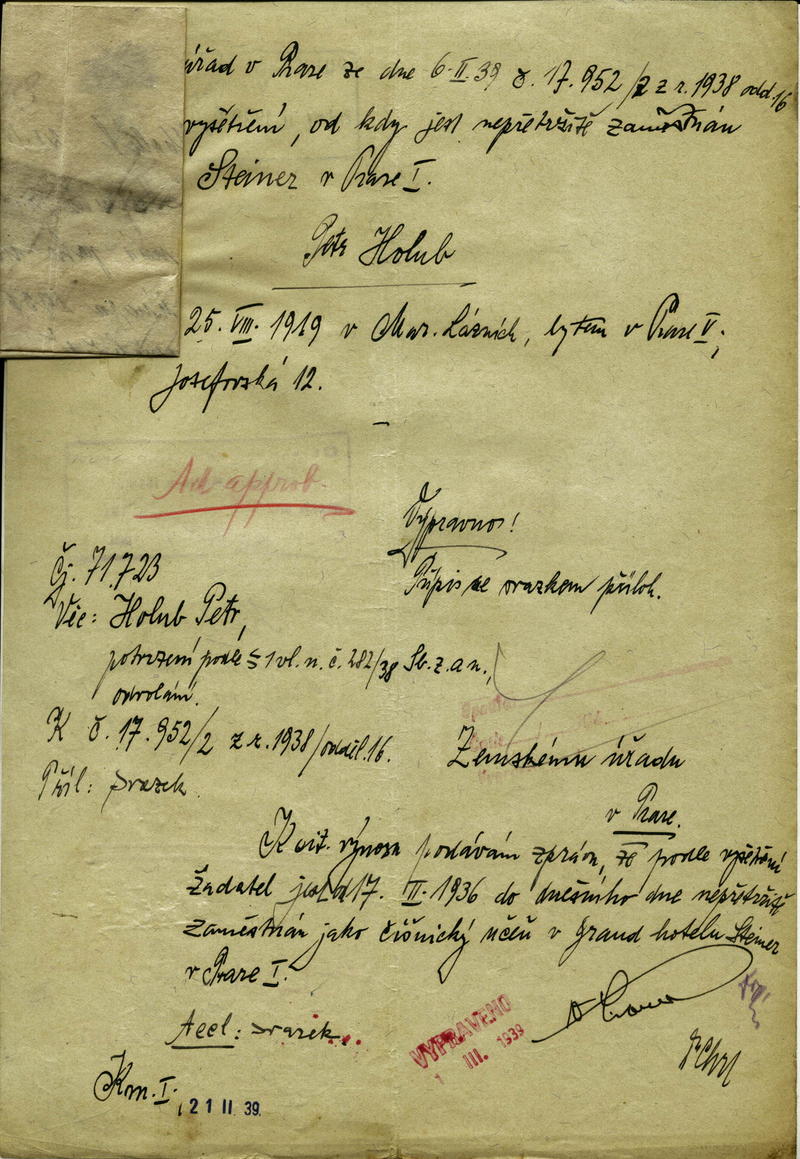 úřad v Praze ze dne 6.II.39 č. 17.952/2 z r. 1938 odd. 16
vyšetření, od kdy jest nepřetržitě zaměstnán
Steiner v Praze I.
Petr Holub
25. VIII. 1919 v Mar. Lázních, bytem v Praze V.,
Josefovská 12.
Ad approb.
Výpravnos!
Přípis se svazkem příloh.
Čj. 71.723
Věc: Holub Petr,
potvrzení podle § 1 vl. n. č. 282/38 Sb. z. a n.,
odvolání.
K č. 17.952/2 z r. 1938/odděl. 16.
Příl: svazek.
Zemskému úřadu
v Praze.
K cit. výnosu podávám zprávu, že podle vyšetření
žadatel jest od 17. II. 1936 do dnešního dne nepřetržitě
zaměstnán jako číšnický učeň v Grand hotelu Steiner
v Praze I.
Accl: svazek.
VYPRAVENO
1 III. 1939
Km. I.
21 II 39.